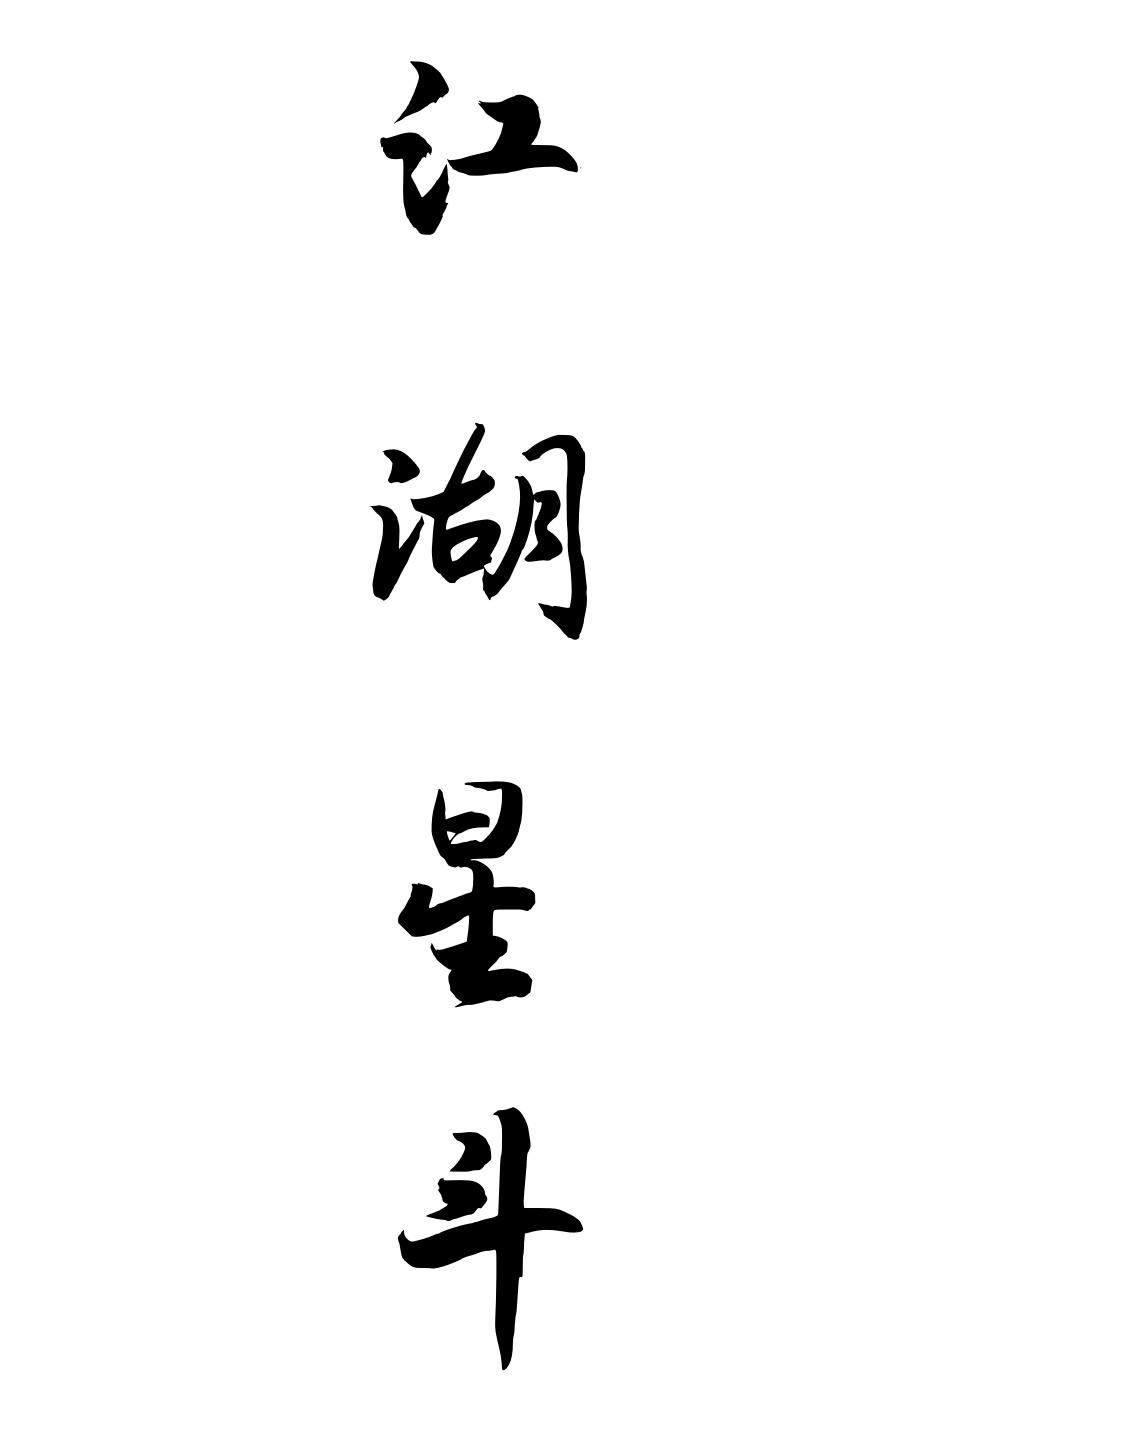 江湖星斗